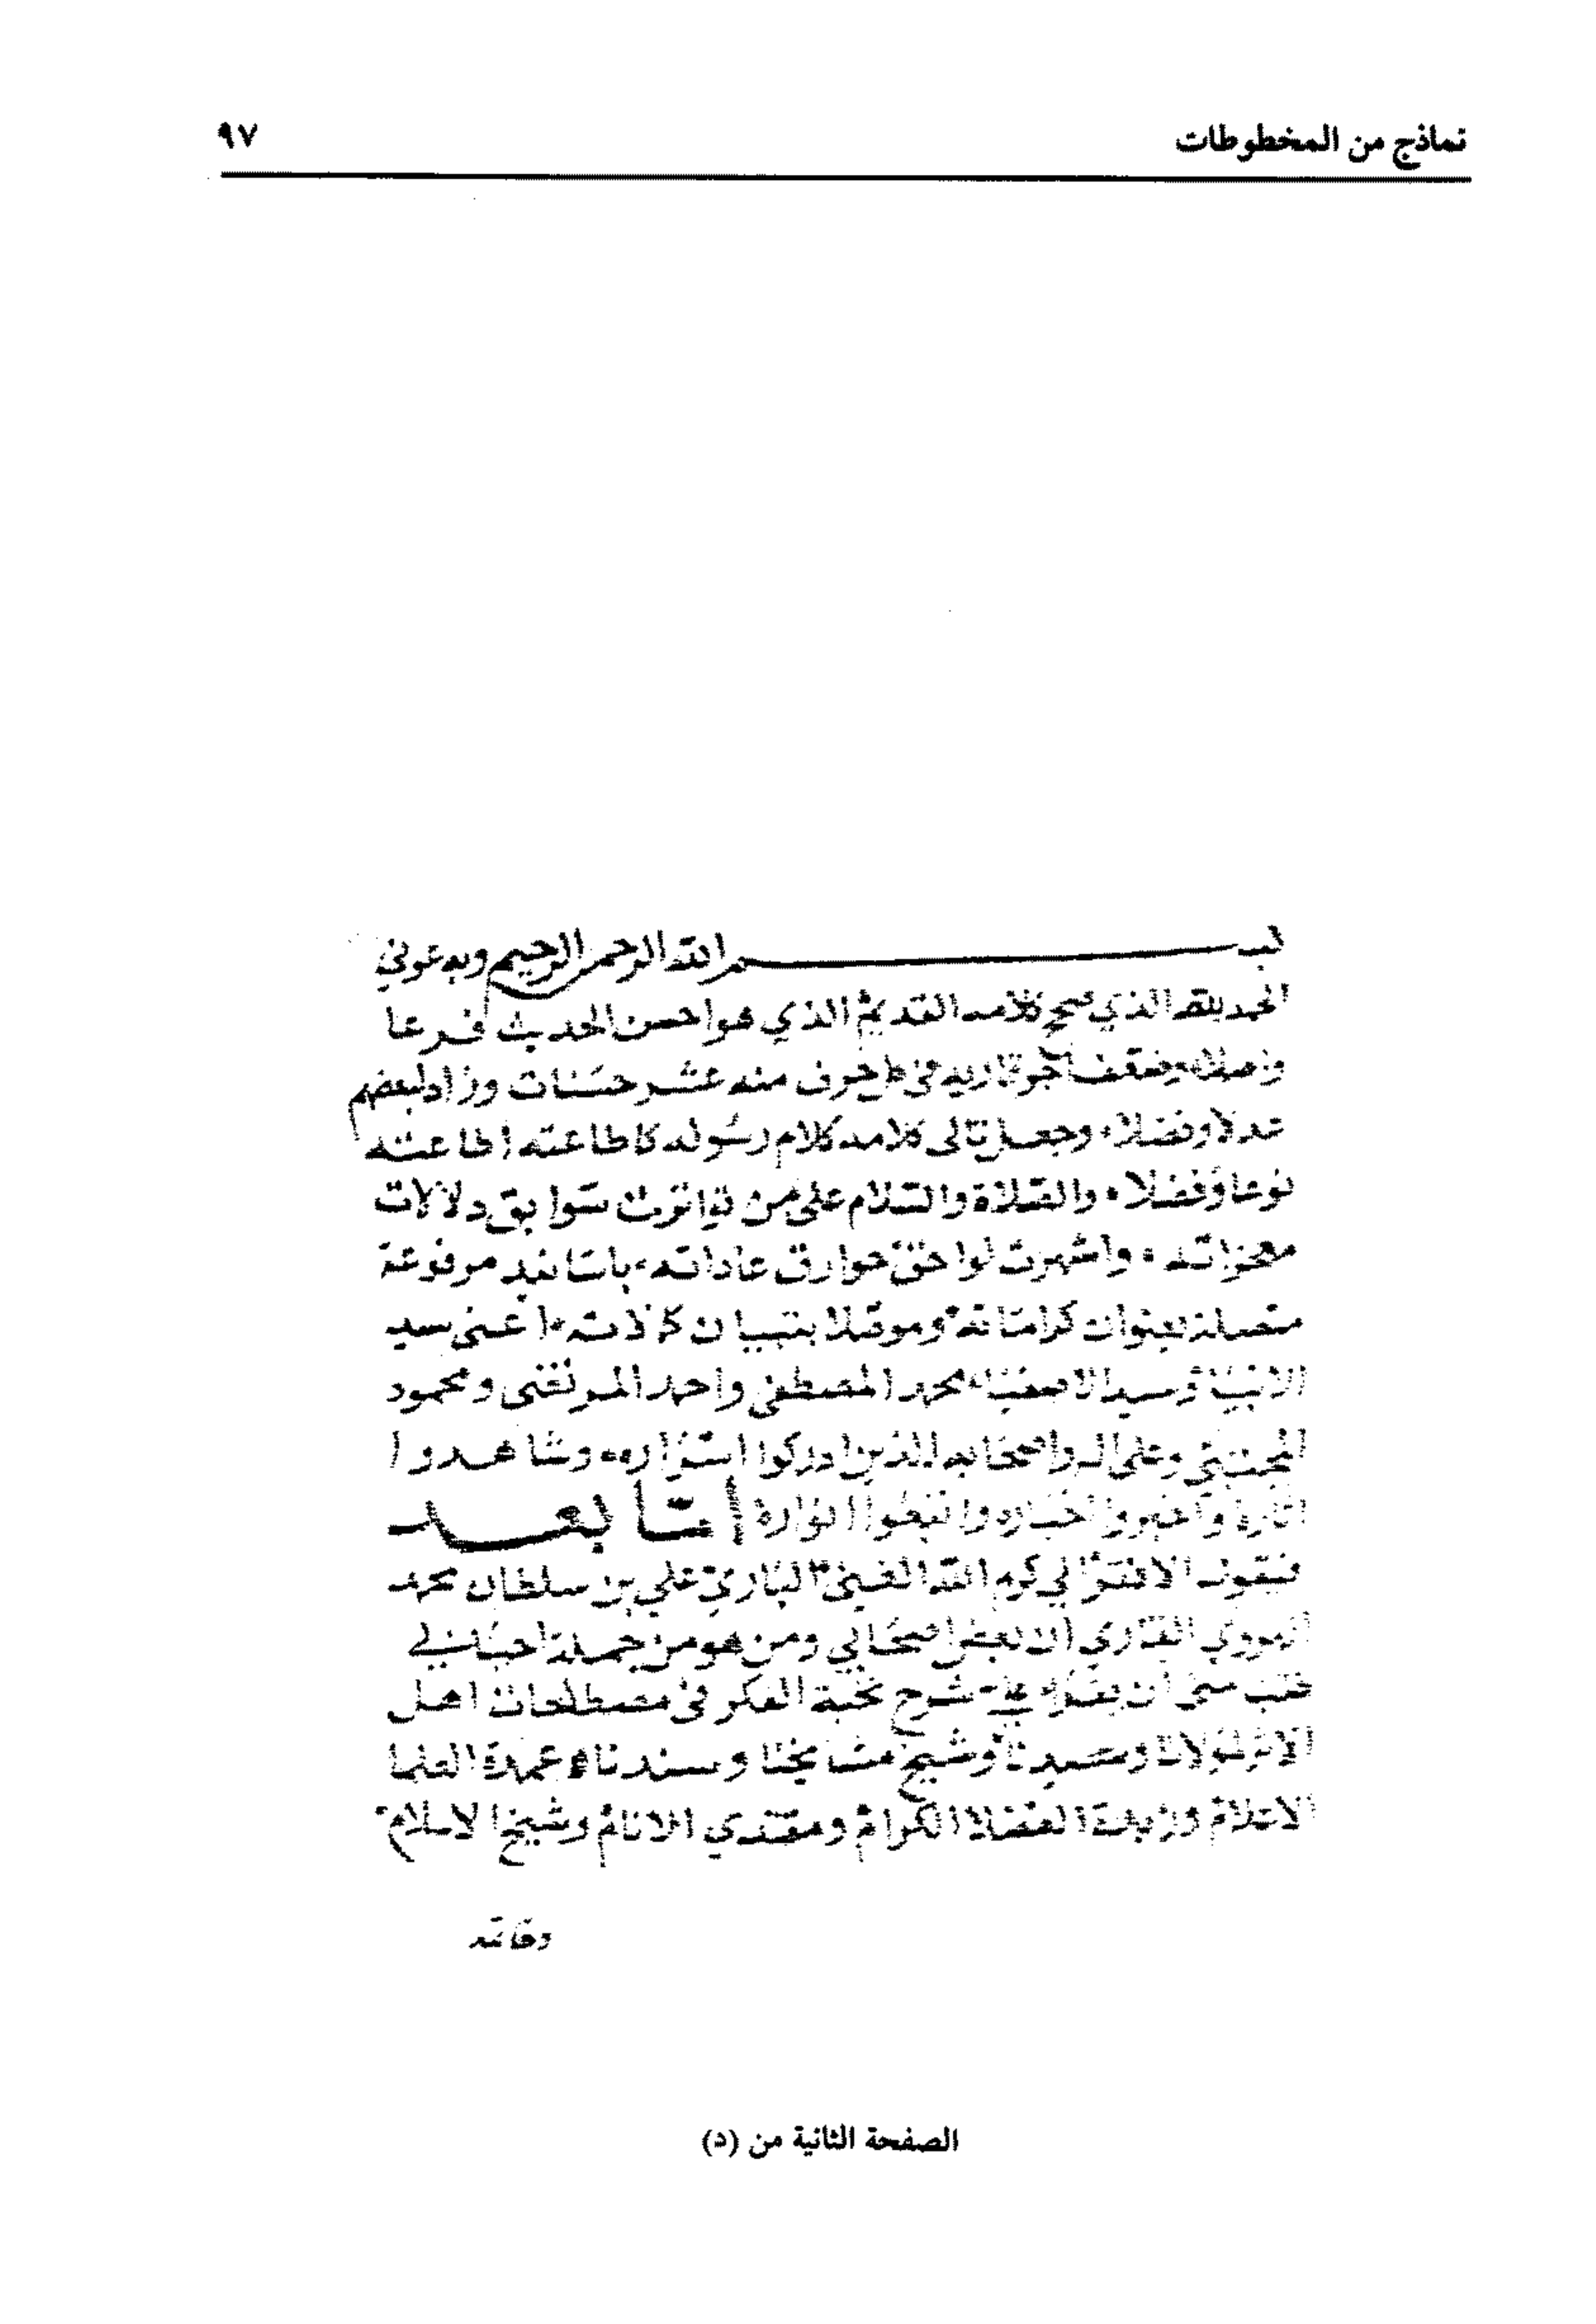 نماذج من المخطوطات ٩٧
بسم الله الرحمن الرحيم وبه عوني
الحمد لله الذي صح كلامه القديم الذي هو احسن الحديث فرعا
واصلا منه عشر حسنات وزاد لبعضهم
عدلا وفضلا وجعل تعالى كلامه كلام رسوله كاطاعته اطاعته
نوعا وفضلا والصلاة والسلام على من تواترت سوابق دلالات
معجزاته واشهرت لواحق خوارق عاداته باسانيد مرفوعة
متصلة بعنوان كراماته وموصلا بتبيان كمالاته اعني سيد
الانبيا وسيد الاصفيا محمد المصطفى واحمد المرتضى ومحمود
المجتبى وعلى اله واصحابه الذين ادركوا اسراره وشاهدوا
اثاره واخبروا اخباره واتبعوا انواره اما بعد
فيقول الافقر الي كرم الله الغني الباري علي بن سلطان محمد
الهروي القاري ان بعض اصحابي ومن هو من جملة احبابي
شرح نخبة الفكر في مصطلحات اهل
الاثر لمولانا وسيدنا وشيخ مشايخنا وسندنا عمدة العلما
الاعلام وزبدة الفضلا الكرام ومقتدي الانام وشيخ الاسلام
الصفحة الثانية من (د)